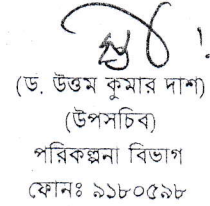 (ড. উত্তম কুমার দাশ)
(উপসচিব)
পরিকল্পনা বিভাগ
ফোনঃ ৯১৮০৫৯৮